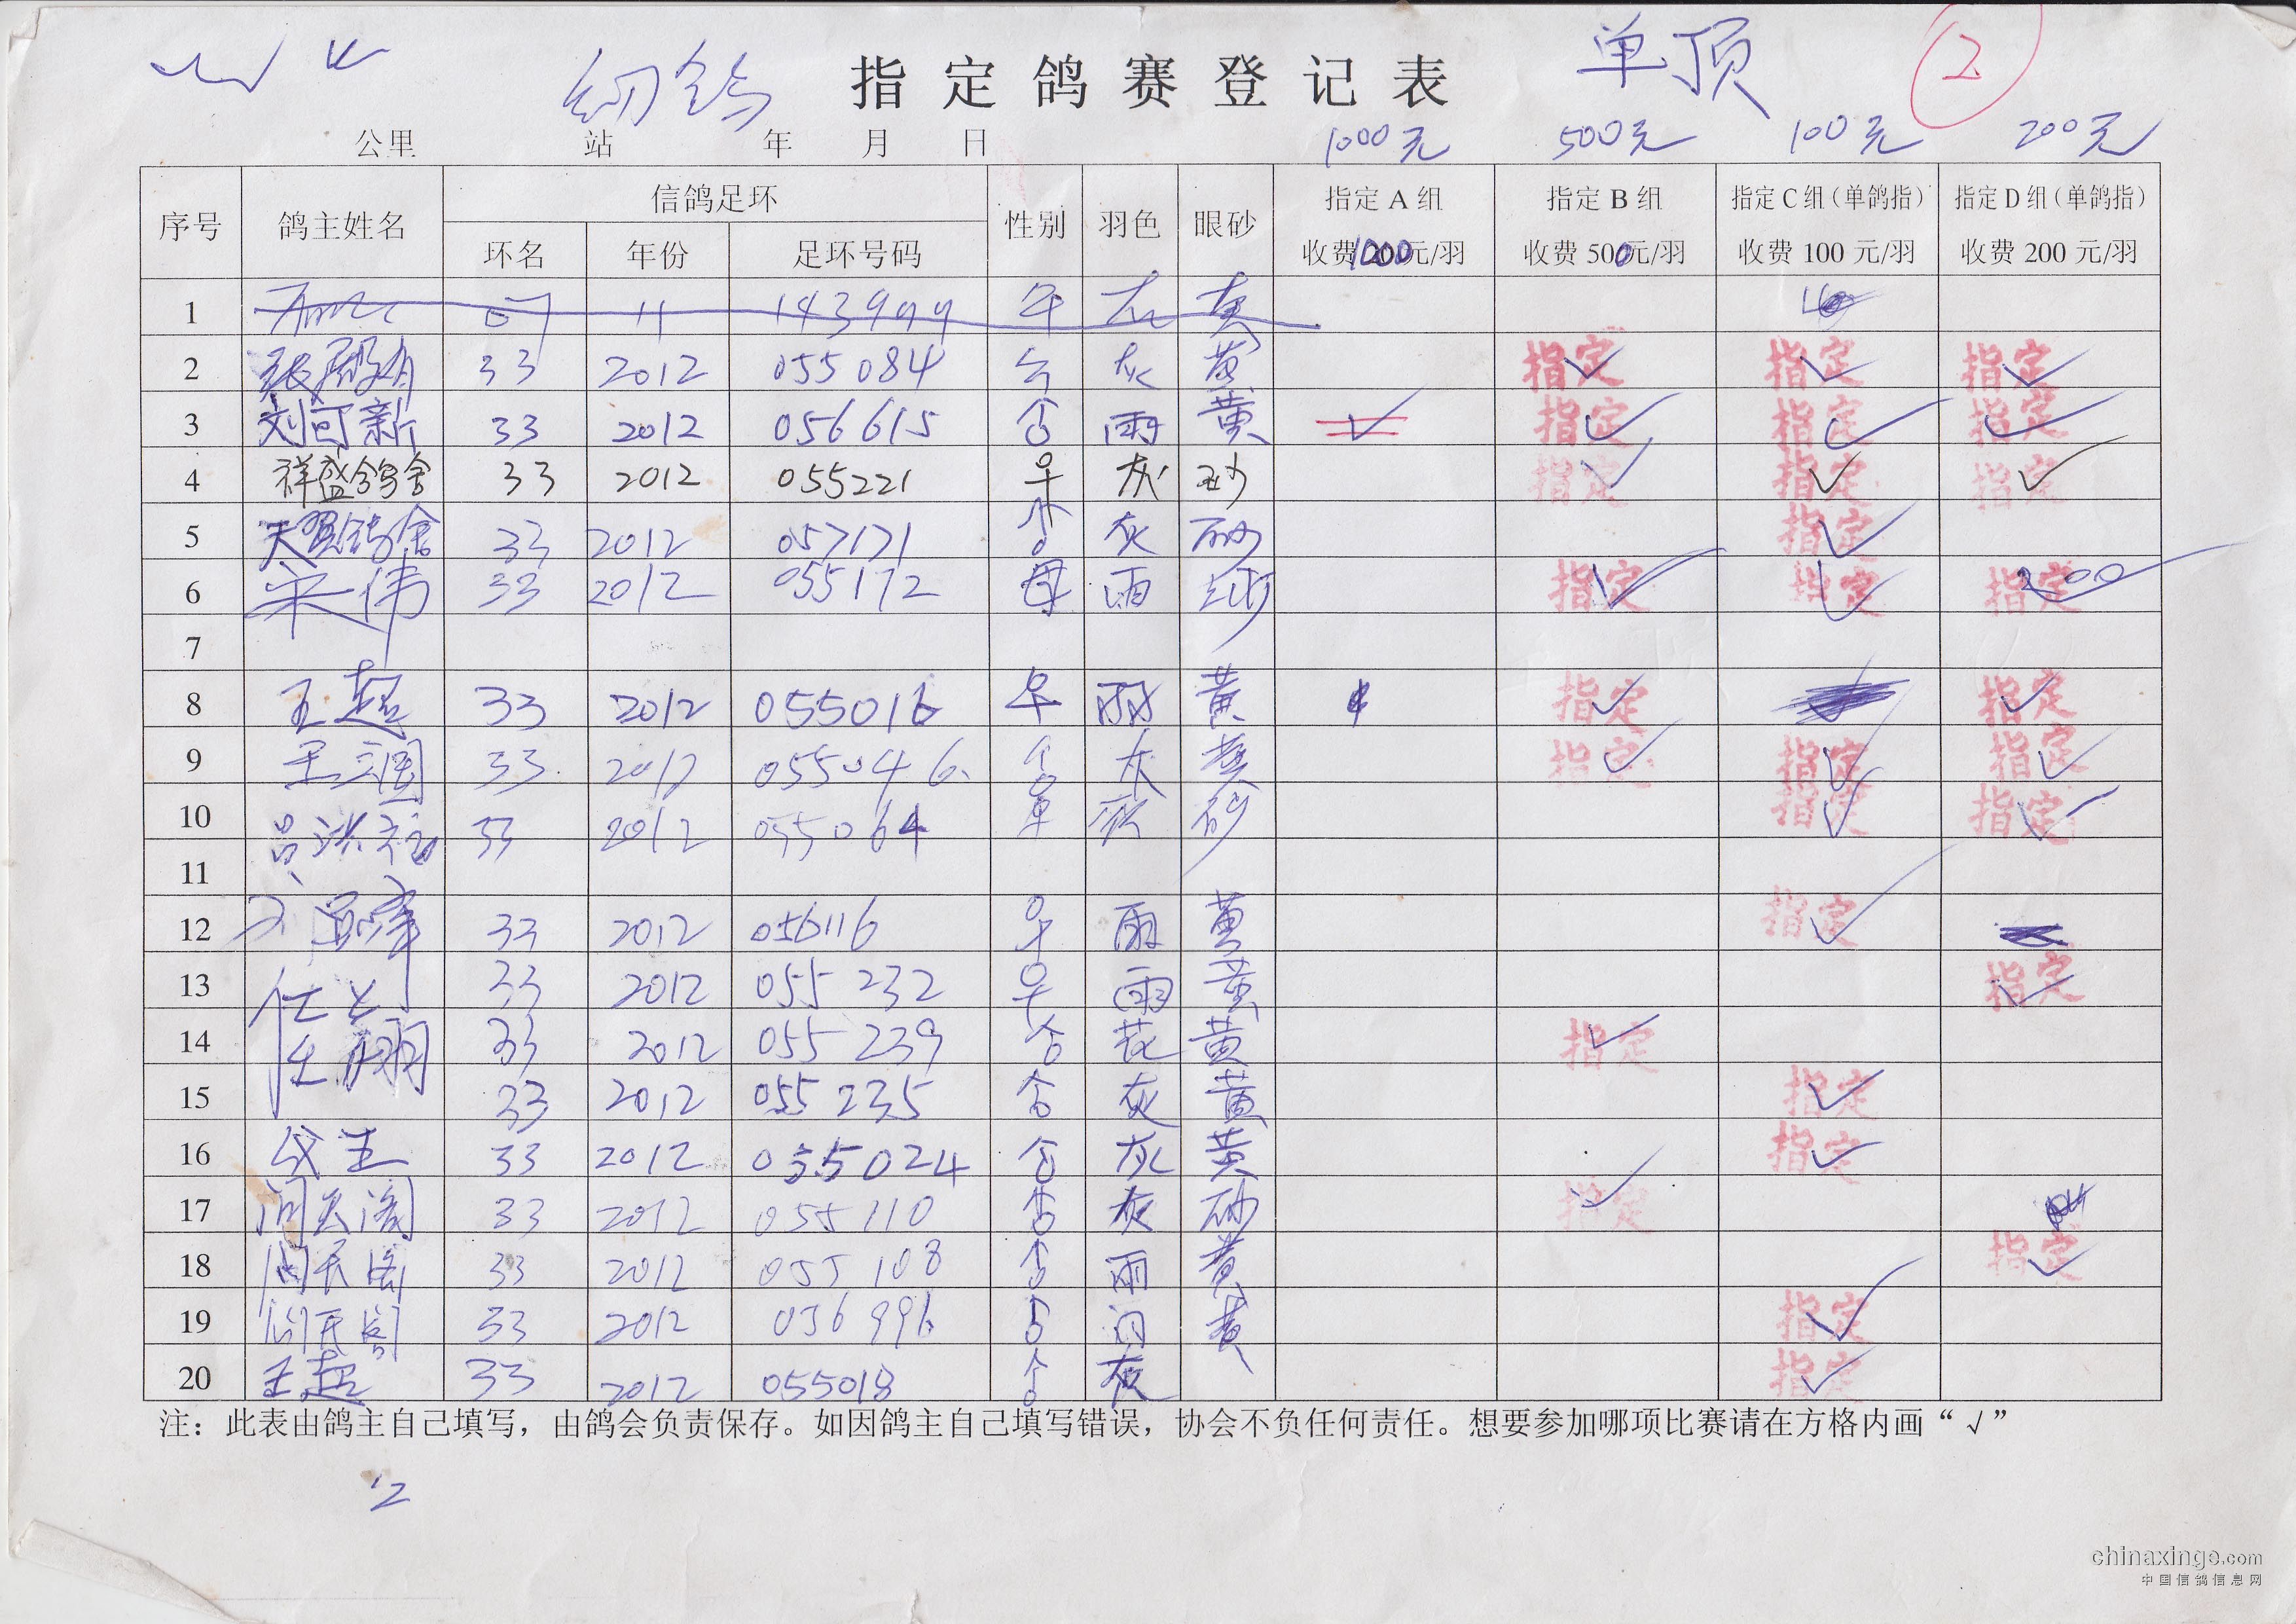 幼鸽 指定鸽赛登记表 单项 2
公里 站 年 月 日 1000元 500元 100元 200元
序号 鸽主姓名 信鸽足环 性别 羽色 眼砂 指定A组 指定B组 指定C组(单鸽指) 指定D组(单鸽指)
环名 年份 足环号码 收费1000元/羽 收费500元/羽 收费100元/羽 收费200元/羽
1 07 11 143999 灰 黄
2 33 2012 055084 灰 黄 指定 √ 指定 √ 指定 √
3 刘可新 33 2012 056615 雨 黄 √ 指定 √ 指定 √ 指定 √
4 祥盛鸽舍 33 2012 055221 灰 砂 指定 √ 指定 √ 指定 √
5 天翼鸽舍 33 2012 057171 灰 砂 指定 √
6 宋伟 33 2012 055172 母 雨 砂 指定 √ 指定 √ 指定 200
7
8 王超 33 2012 055016 雨 黄 指定 √ √ 指定 √
9 王三国 33 2012 055046 灰 黄 指定 √ 指定 √ 指定 √
10 33 2012 055064 灰 砂 指定 √ 指定 √
11
12 33 2012 056116 雨 黄 指定 √
13 33 2012 055232 雨 黄 指定 √
14 任翔 33 2012 055239 花 黄 指定 √
15 33 2012 055235 灰 黄 指定 √
16 33 2012 055024 灰 黄 指定 √
17 33 2012 055110 灰 砂 指定 √
18 33 2012 055108 雨 黄 指定 √
19 33 2012 056996 黄 指定 √
20 王超 33 2012 055018 灰 指定 √
注：此表由鸽主自己填写，由鸽会负责保存。如因鸽主自己填写错误，协会不负任何责任。想要参加哪项比赛请在方格内画“√”
12
chinaxinge.com
中国信鸽信息网